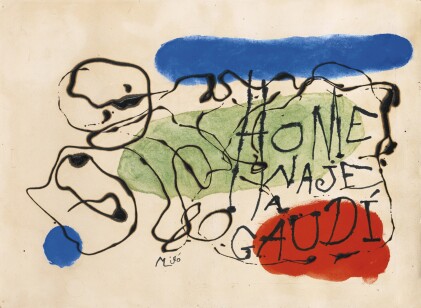 HOME
NAJE
A
GAUDÍ
Miró